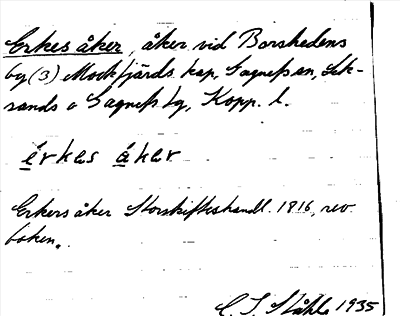 Erkes åker, åker vid Borshedens
by (3) Mockfjärds kap, Gagnefs sn, Lek-
sands o Gagnefs tg, Kopp. l.
érkes åker
Erkers åker Storskifteshandl. 1816, rev.
boken.
C. I. Ståhle 1935